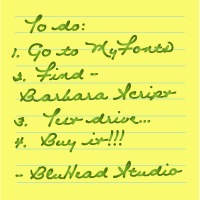 To do:
1. Go to MyFonts
2. Find -
Barbara Script
3. Test drive...
4. Buy it!!!
- BluHead Studio